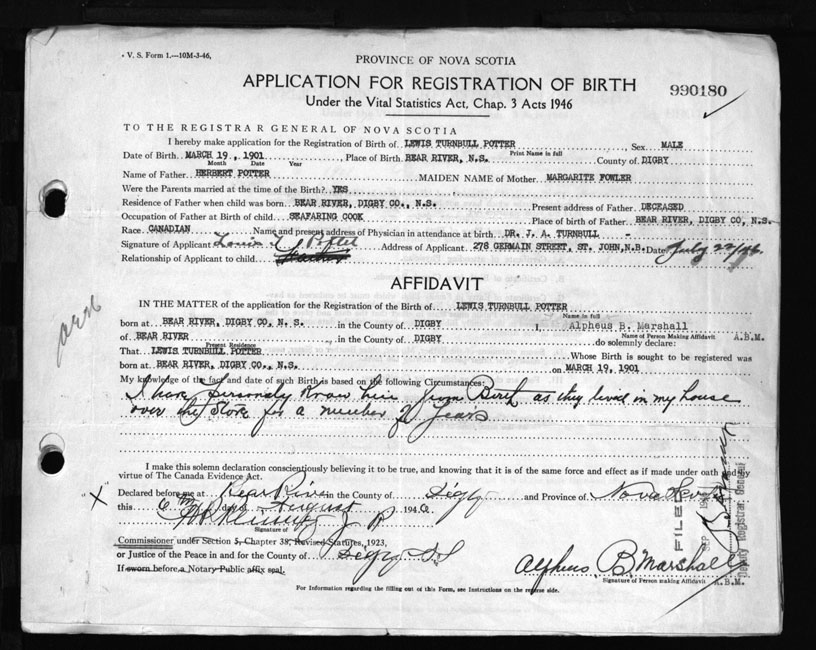 V. S. Form 1.—10M-3-46.
PROVINCE OF NOVA SCOTIA
APPLICATION FOR REGISTRATION OF BIRTH
990180
Under the Vital Statistics Act, Chap. 3 Acts 1946
TO THE REGISTRAR GENERAL OF NOVA SCOTIA
I hereby make application for the Registration of Birth of LEWIS TURNBULL POTTER Sex MALE
Print Name in full
Date of Birth MARCH 19, 1901 Place of Birth BEAR RIVER, N.S. County of DIGBY
Month Date Year
Name of Father HERBERT POTTER MAIDEN NAME of Mother MARGARITE FOWLER
Were the Parents married at the time of the Birth? YES
Residence of Father when child was born BEAR RIVER, DIGBY CO., N.S. Present address of Father DECEASED
Occupation of Father at Birth of child SEAFARING COOK Place of birth of Father BEAR RIVER, DIGBY CO, N.S.
Race CANADIAN Name and present address of Physician in attendance at birth DR. J. A. TURNBULL -
Signature of Applicant Potter Address of Applicant 278 GERMAIN STREET, ST. JOHN, N.B. Date July 22/46.
Relationship of Applicant to child
AFFIDAVIT
IN THE MATTER of the application for the Registration of the Birth of LEWIS TURNBULL POTTER
Name in full
born at BEAR RIVER, DIGBY CO, N. S. in the County of DIGBY I, Alpheus B. Marshall
Name of Person Making Affidavit A.B.M.
of BEAR RIVER in the County of DIGBY do solemnly declare:
Present Residence
That LEWIS TURNBULL POTTER Whose Birth is sought to be registered was
born at BEAR RIVER, DIGBY CO., N.S. on MARCH 19, 1901
My knowledge of the fact and date of such Birth is based on the following Circumstances:
I have personaly Know him from Birth as they lived in my house
over the Store for a number of Years
I make this solemn declaration conscientiously believing it to be true, and knowing that it is of the same force and effect as if made under oath and by
virtue of The Canada Evidence Act.
X Declared before me at Bear River in the County of Digby and Province of Nova Scotia
this 6th day of August 1946
J P
Signature of
Commissioner under Section 5, Chapter 38, Revised Statutes, 1923,
or Justice of the Peace in and for the County of Digby N S
Alpheus B Marshall
If sworn before a Notary Public affix seal.
Signature of Person making Affidavit A.B.M.
For Information regarding the filling out of this Form, see Instructions on the reverse side.
FILED
SEP
Deputy Registrar General